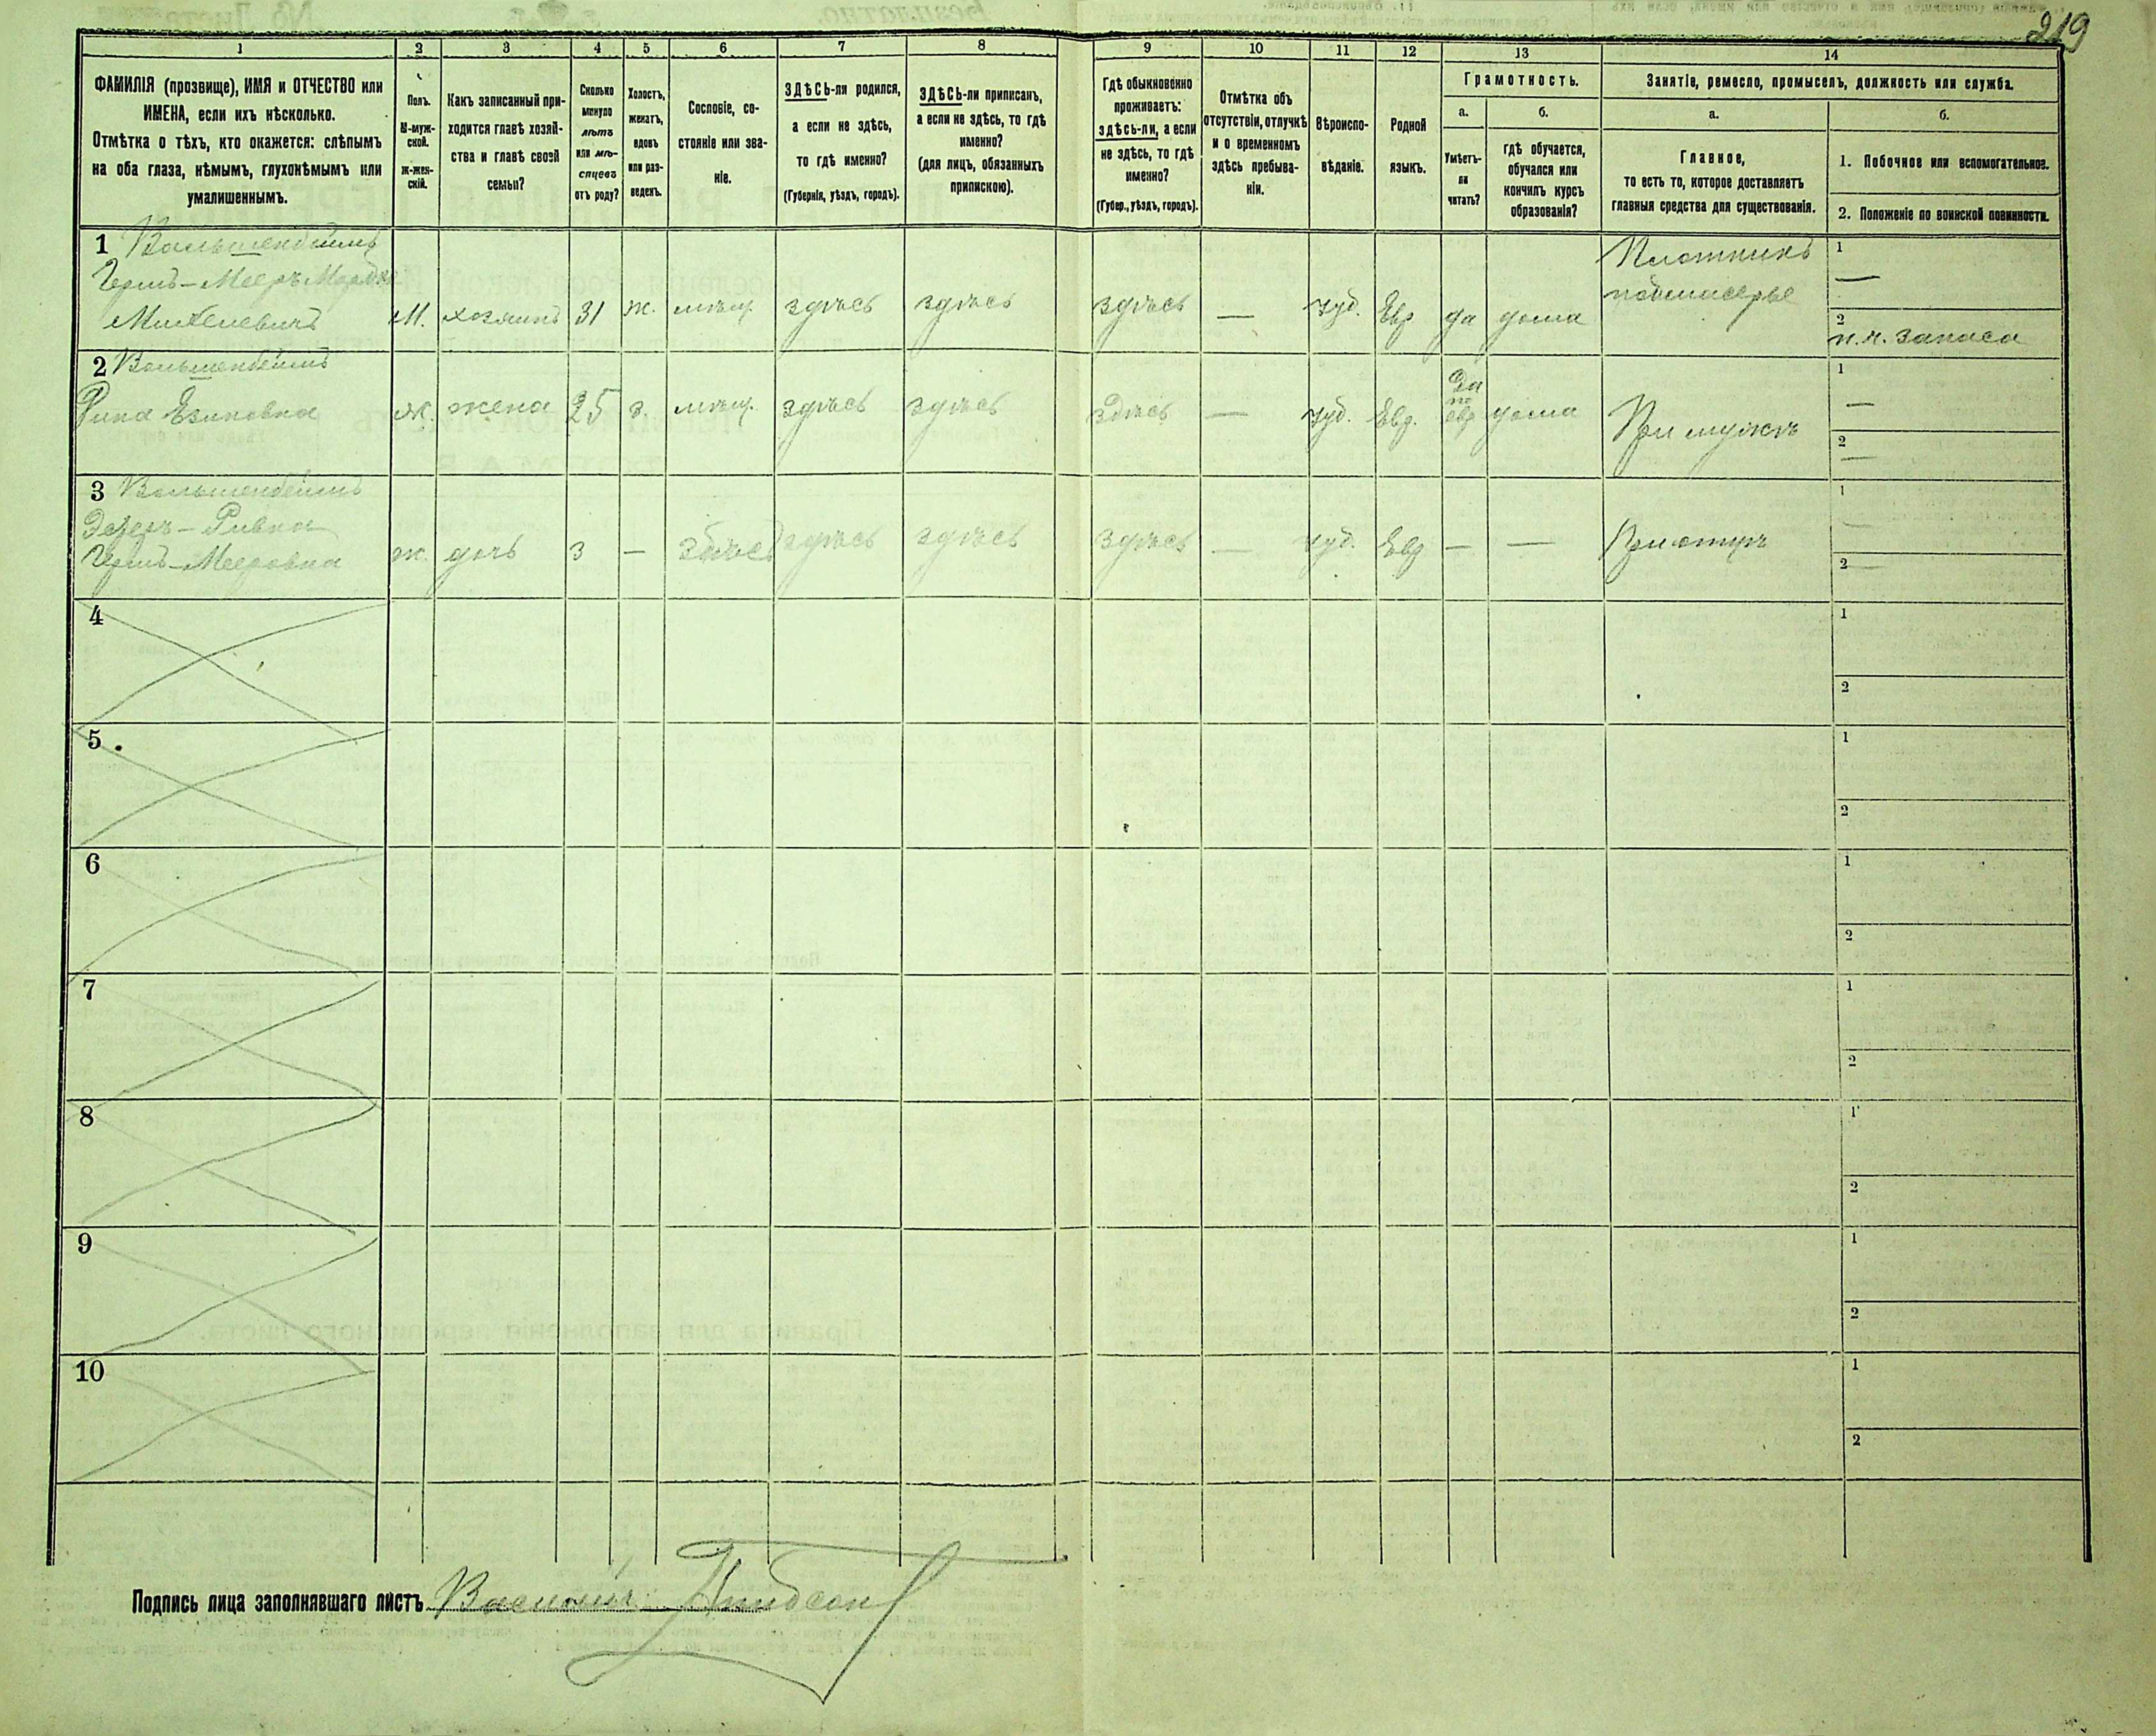 219
1 2 3 4 5 6 7 8 9 10 11 12 13 14
ФАМИЛІЯ (прозвище), ИМЯ и ОТЧЕСТВО или
ИМЕНА, если ихъ нѣсколько.
Отмѣтка о тѣхъ, кто окажется: слѣпымъ
на оба глаза, нѣмымъ, глухонѣмымъ или
умалишеннымъ.
Полъ.
М-муж-
ской.
Ж-жен-
скій.
Какъ записанный при-
ходится главѣ хозяй-
ства и главѣ своей
семьи?
Сколько
минуло
лѣтъ
или мѣ-
сяцевъ
отъ роду?
Холостъ,
женатъ,
вдовъ
или раз-
веденъ.
Сословіе, со-
стояніе или зва-
ніе.
ЗДѢСЬ-ли родился,
а если не здѣсь,
то гдѣ именно?
(Губернія, уѣздъ, городъ).
ЗДѢСЬ-ли приписанъ,
а если не здѣсь, то гдѣ
именно?
(для лицъ, обязанныхъ
припискою).
Гдѣ обыкновенно
проживаетъ:
здѣсь-ли, а если
не здѣсь, то гдѣ
именно?
(Губер., уѣздъ, городъ).
Отмѣтка объ
отсутствіи, отлучкѣ
и о временномъ
здѣсь пребыва-
ніи.
Вѣроиспо-
вѣданіе.
Родной
языкъ.
Грамотность.
а.
Умѣетъ-
ли
читать?
б.
гдѣ обучается,
обучался или
кончилъ курсъ
образованія?
Занятіе, ремесло, промыселъ, должность или служба.
а.
Главное,
то есть то, которое доставляетъ
главныя средства для существованія.
б.
1. Побочное или вспомогательное.
2. Положеніе по воинской повинности.
1 Вольшенбеймъ
Гершъ-Мееръ
М. хозяинъ 31 ж. мѣщ. здѣсь здѣсь здѣсь — іуд. Евр да дома
Плотникъ
подмастерье
1 —
2
п.ч. запаса
2 Вольшенбеймъ
ж. жена 25 з. мѣщ. здѣсь здѣсь здѣсь — іуд. Евр. Да
по
евр дома При мужѣ
1 —
2 —
3 Вольшенбеймъ
Ривка
Гершъ-Мееровна
ж. дочь 3 — здѣсь здѣсь здѣсь — іуд. Евр — — При отцѣ
1 —
2 —
4 1
2
5 1
2
6 1
2
7 1
2
8 1
2
9 1
2
10 1
2
Подпись лица заполнявшаго листъ Василій